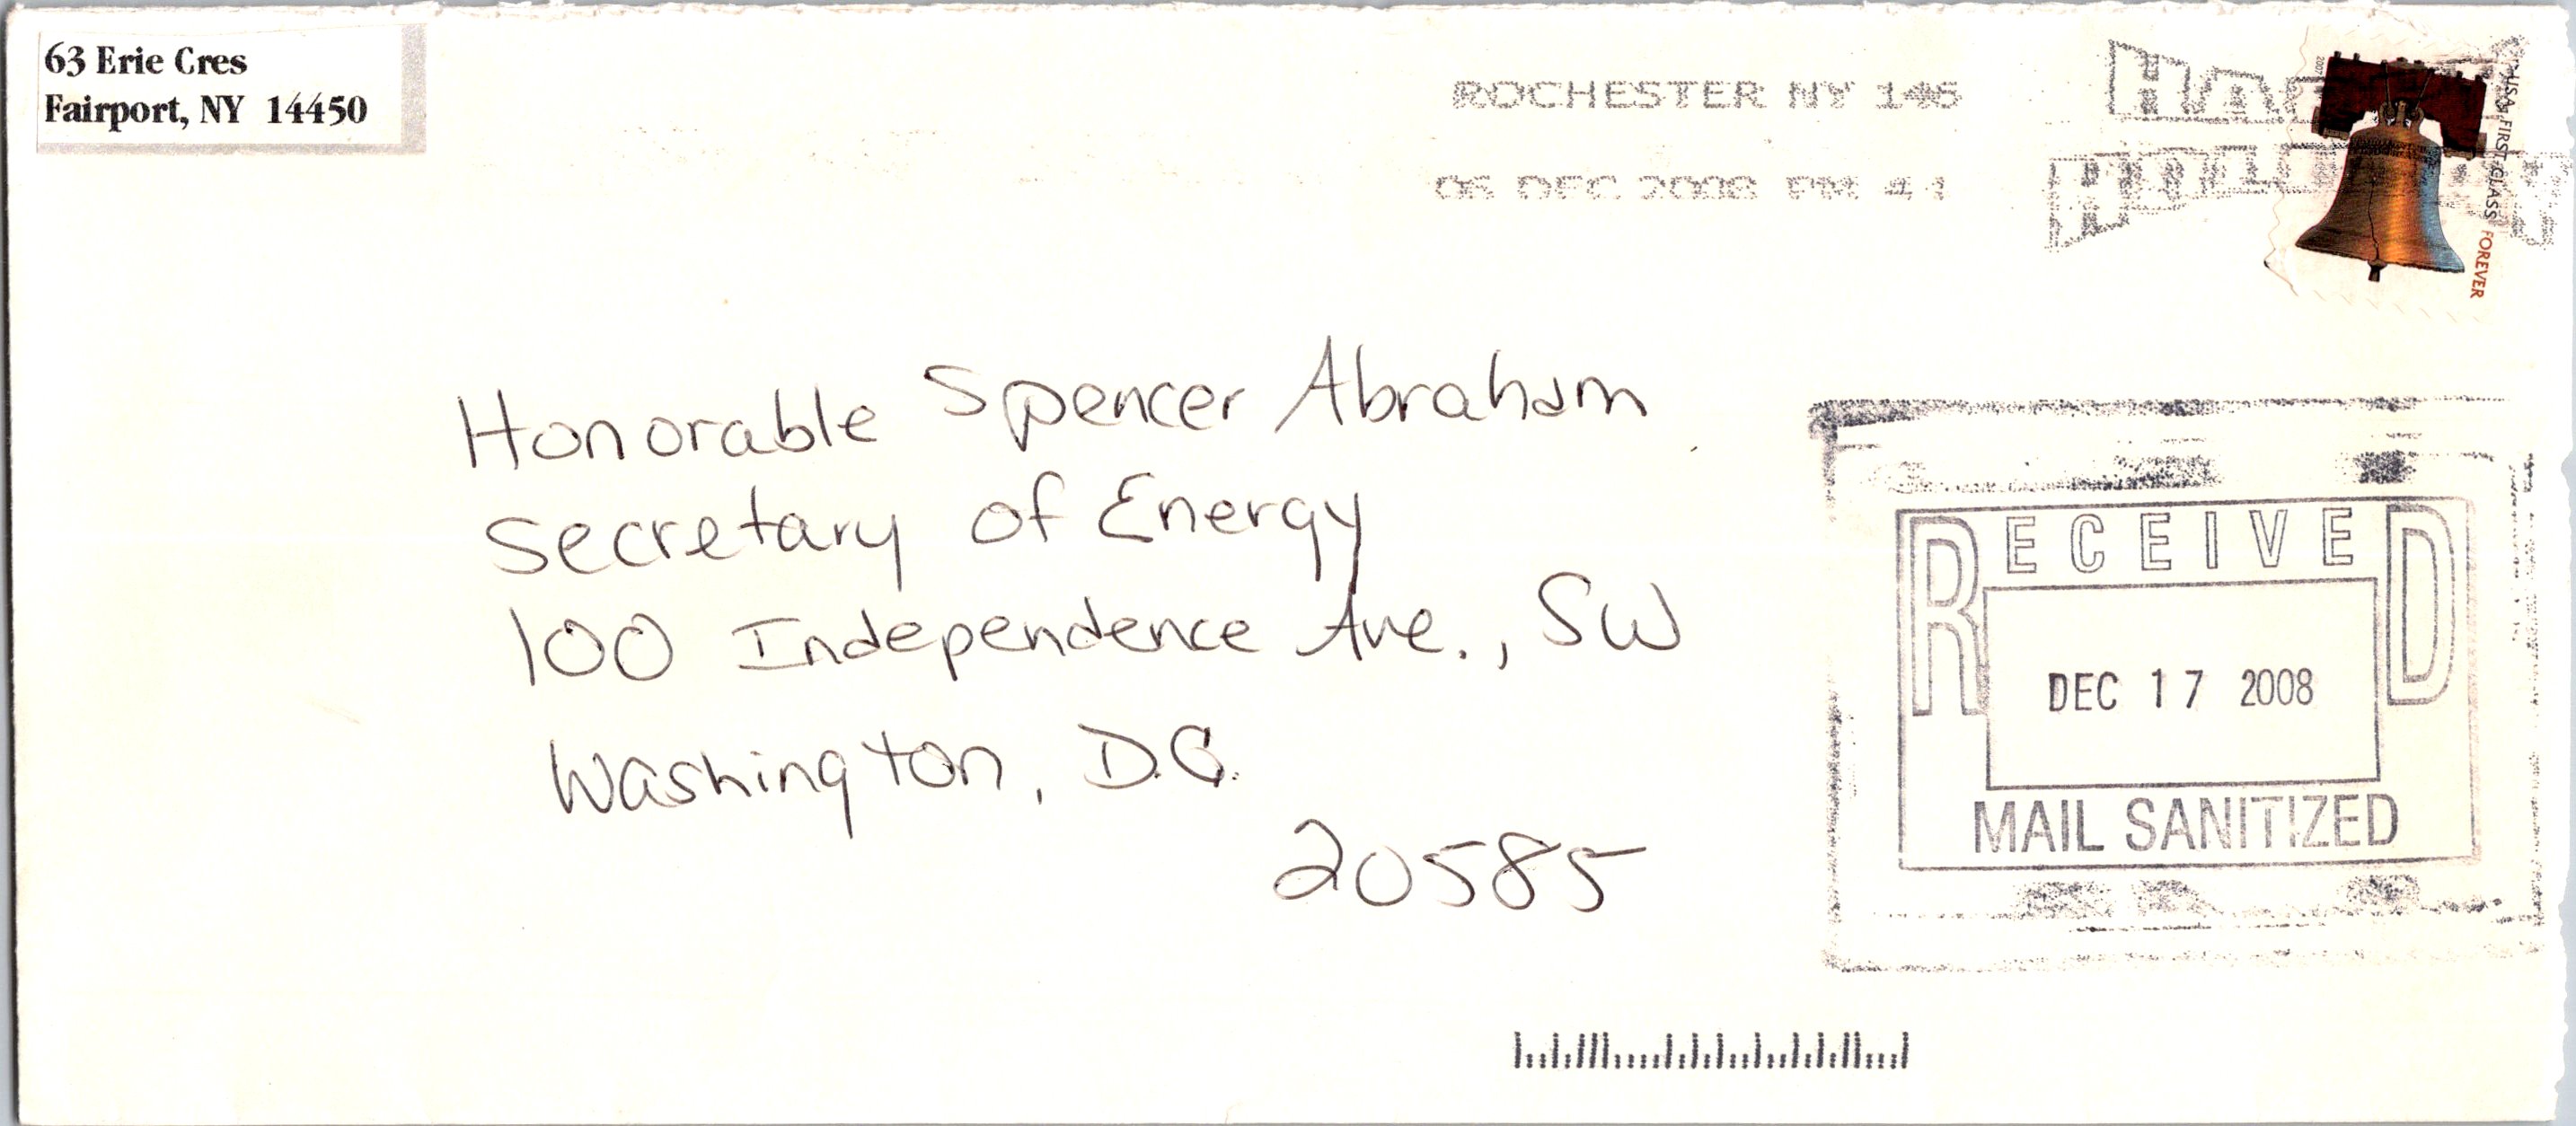 63 Erie Cres
Fairport, NY 14450
ROCHESTER NY 146
06 DEC 2008 PM 4 1
2007
USA FIRST-CLASS FOREVER
Honorable Spencer Abraham
Secretary of Energy
100 Independence Ave., SW
Washington, D.C.
20585
RECEIVED
DEC 17 2008
MAIL SANITIZED